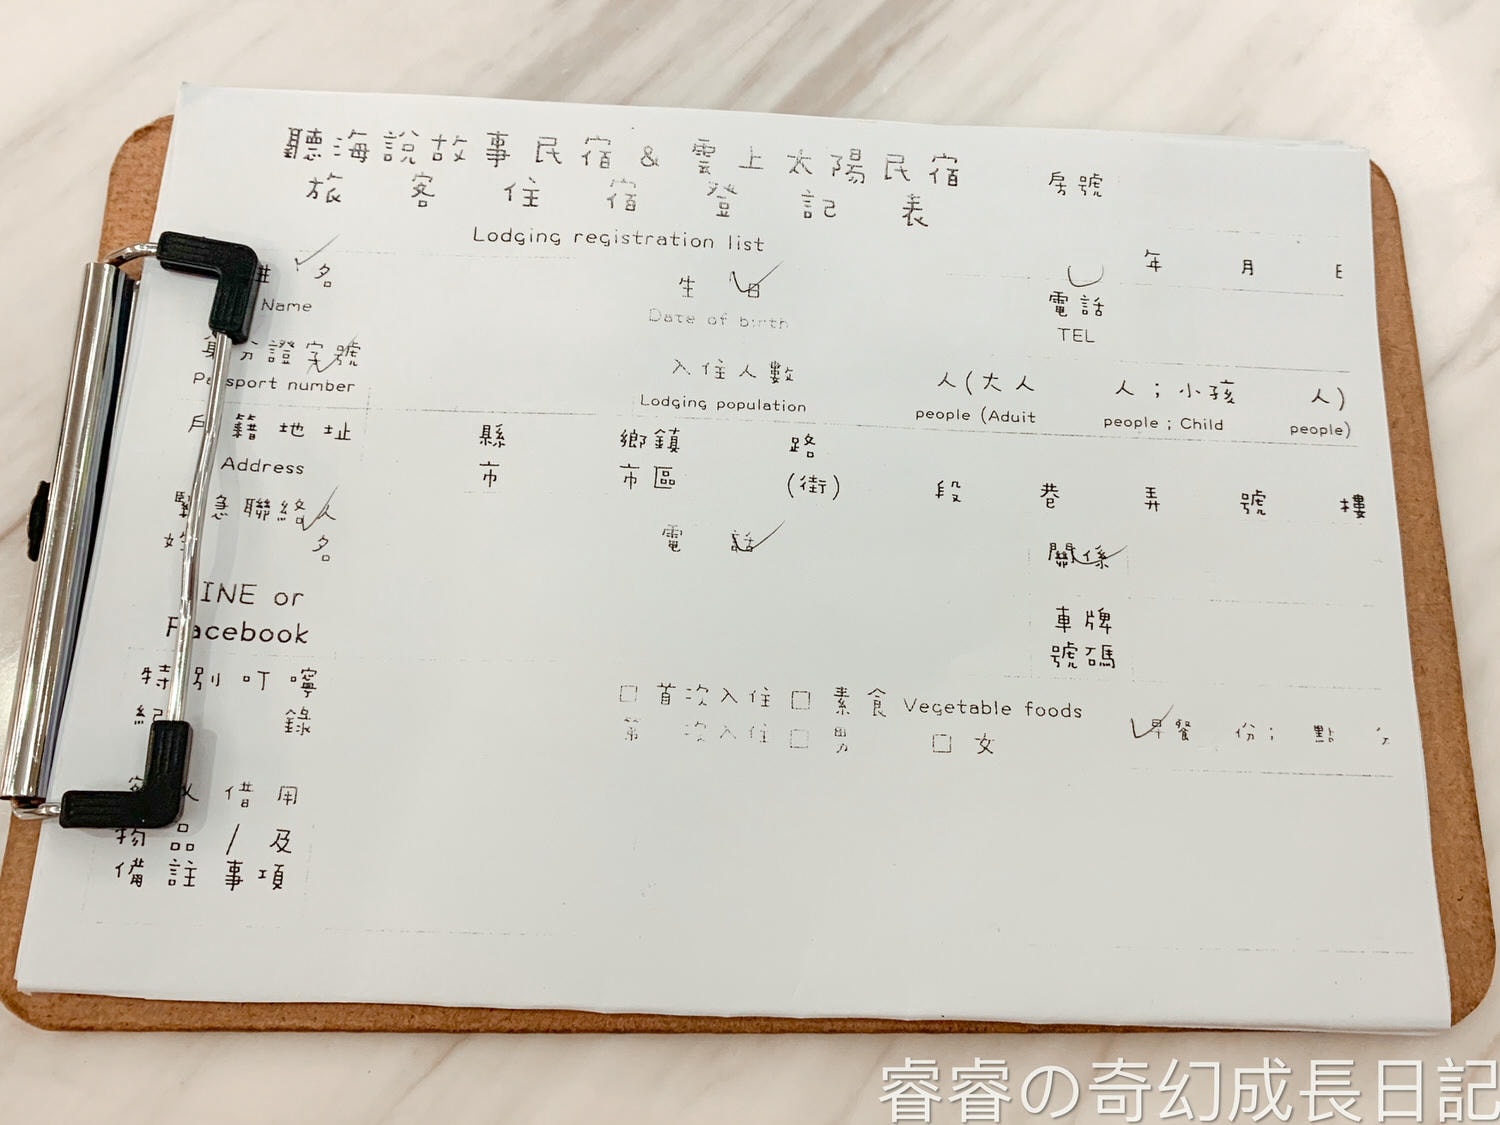 聽海說故事民宿 & 雲上太陽民宿
旅客住宿登記表
房號
Lodging registration list
年 月 日
姓名 生日 電話
Name Date of birth TEL
身份證字號 入住人數 人(大人 人;小孩 人)
Passport number Lodging population people (Aduit people ; Child people)
戶籍地址 縣 鄉鎮 路
Address 市 市區 (街) 段 巷 弄 號 樓
緊急聯絡人 電話 關係
姓名
LINE or 車牌
Facebook 號碼
特別叮嚀 □ 首次入住 □ 素食 Vegetable foods 早餐 份; 點
紀錄 第 次入住 □ 男 □ 女
借用
物品/及
備註事項
睿睿の奇幻成長日記